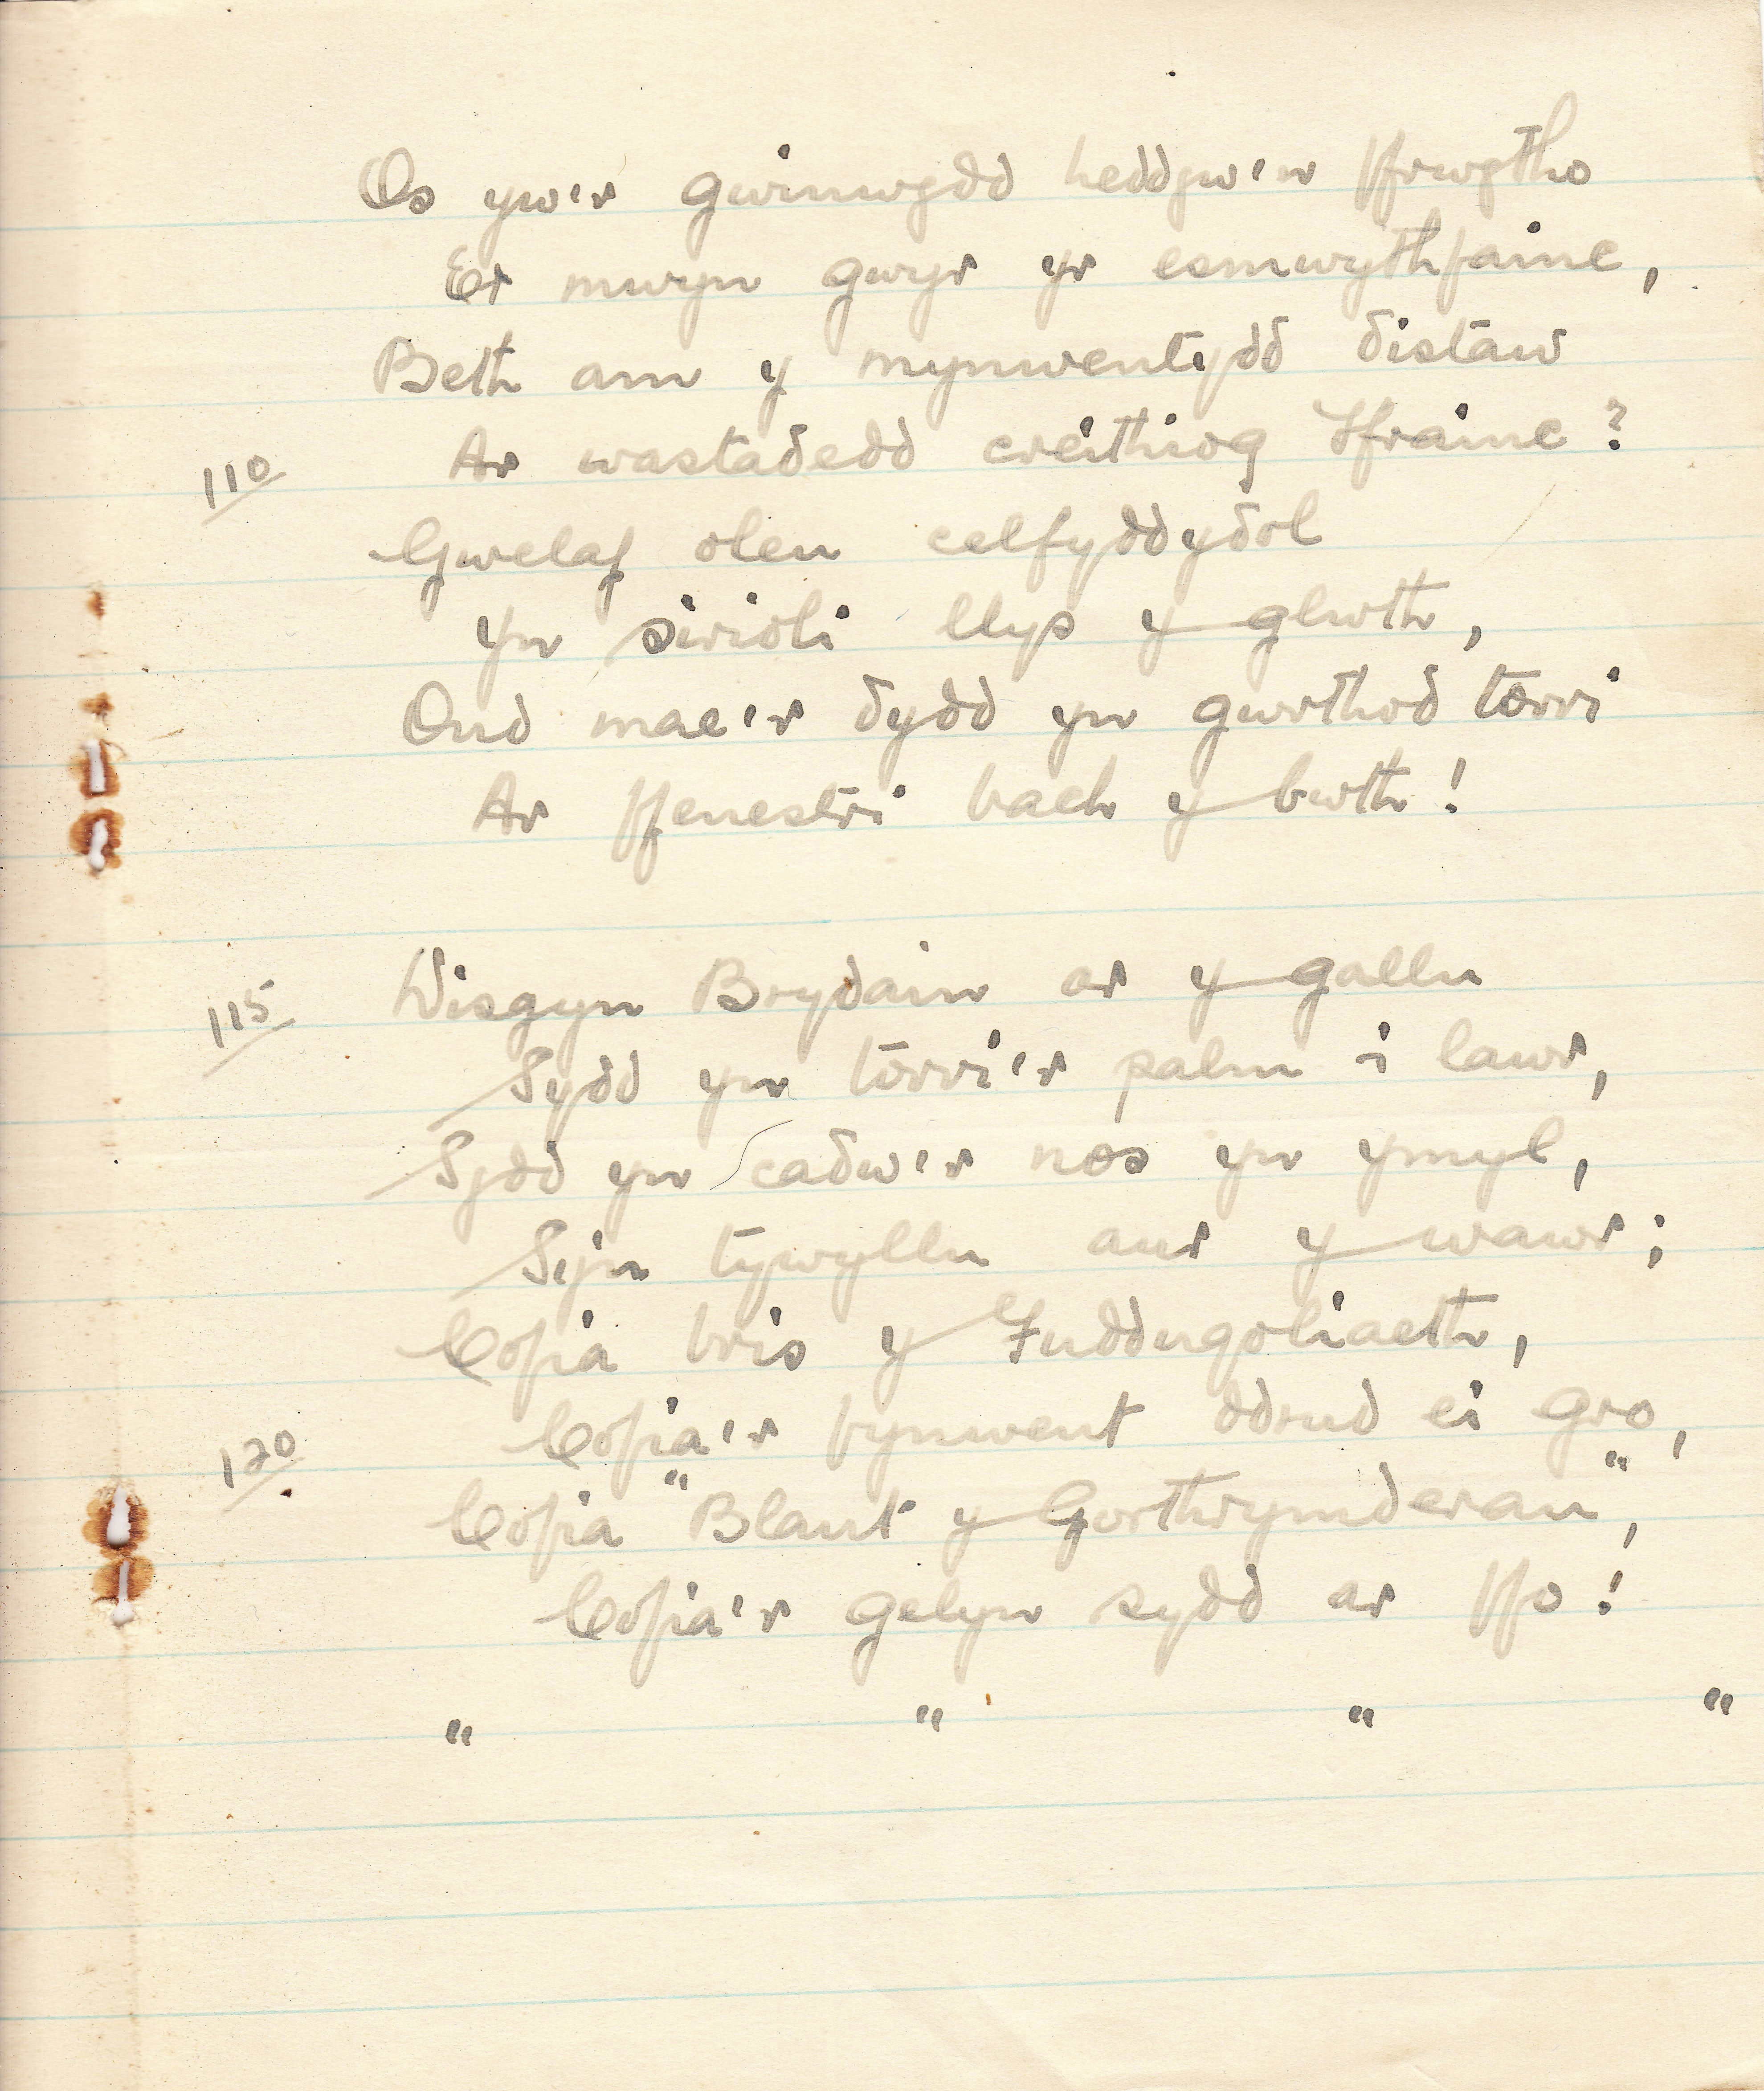 Os yw'r gwinwydd heddyw'n ffrwytho
Er mwyn gwyr yr esmwythfainc,
Beth am y mynwentydd distaw
110 Ar wastadedd creithiog Ffrainc?
Gwelaf olen celfyddydol
Yn sirioli llys y glwth,
Ond mae'r dydd yn gwrthod torri
Ar ffenestri bach y bwth!
115 Disgyn Brydain ar y gallu
Sydd yn torri'r palm i lawr,
Sydd yn cadw'r nos yn ymyl,
Sy'n tywyllu aur y wawr;
Cofia bris y Fuddugoliaeth,
120 Cofia'r fynwent ddrud ei gro,
Cofia "Blant y Gorthrymderau",
Cofia'r gelyn sydd ar ffo!
" " " "